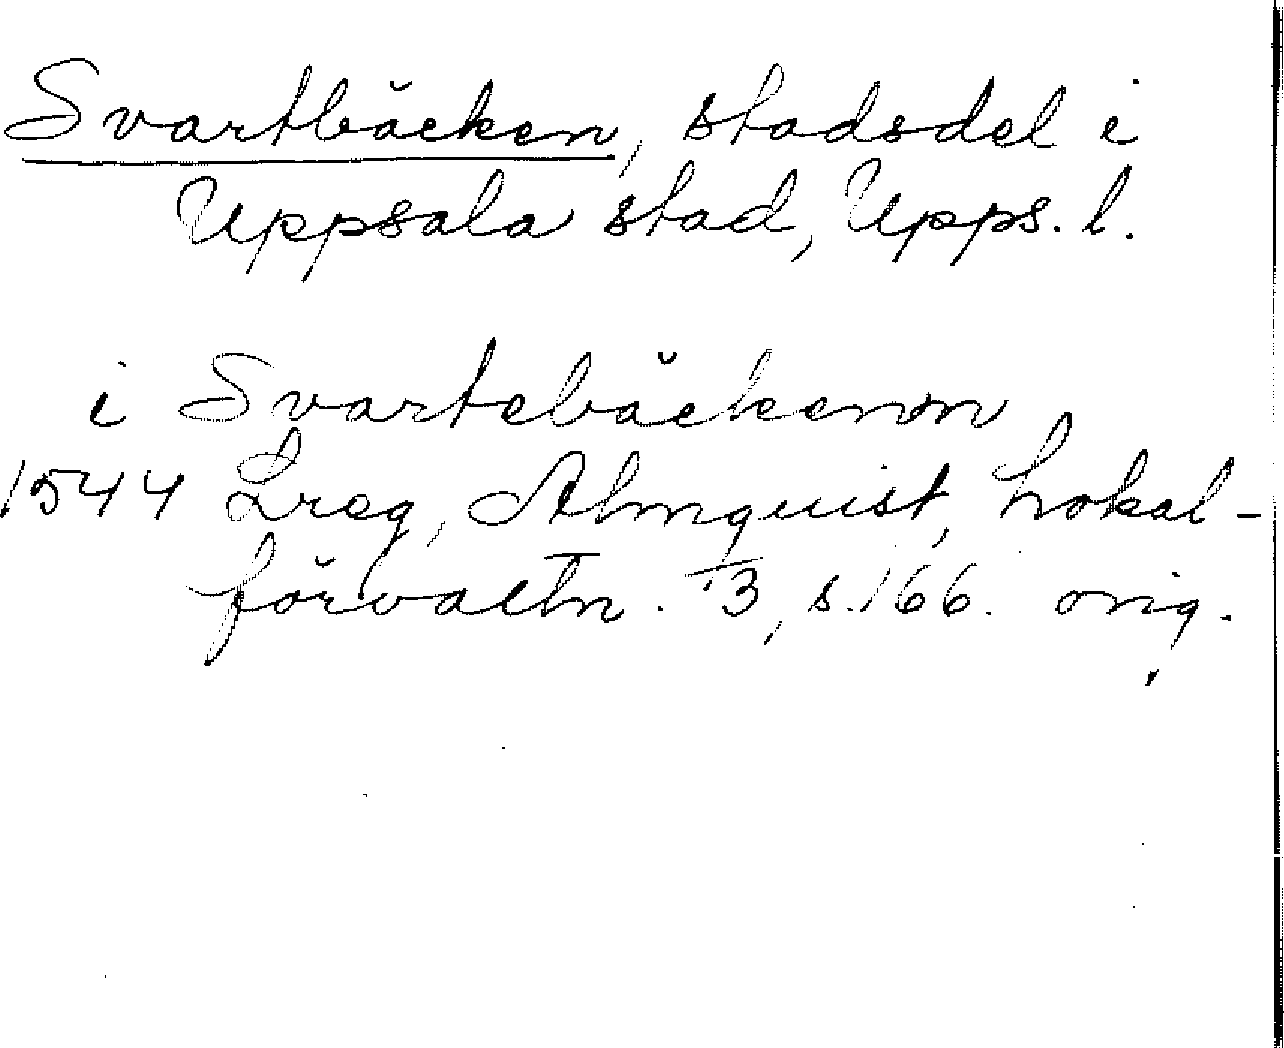 Svartbäcken, stadsdel i
Uppsala stad, Upps. l.
i Svartebäckenom
1544 Lreg, Almquist, Lokal-
förvaltn. 3, s. 166. orig.